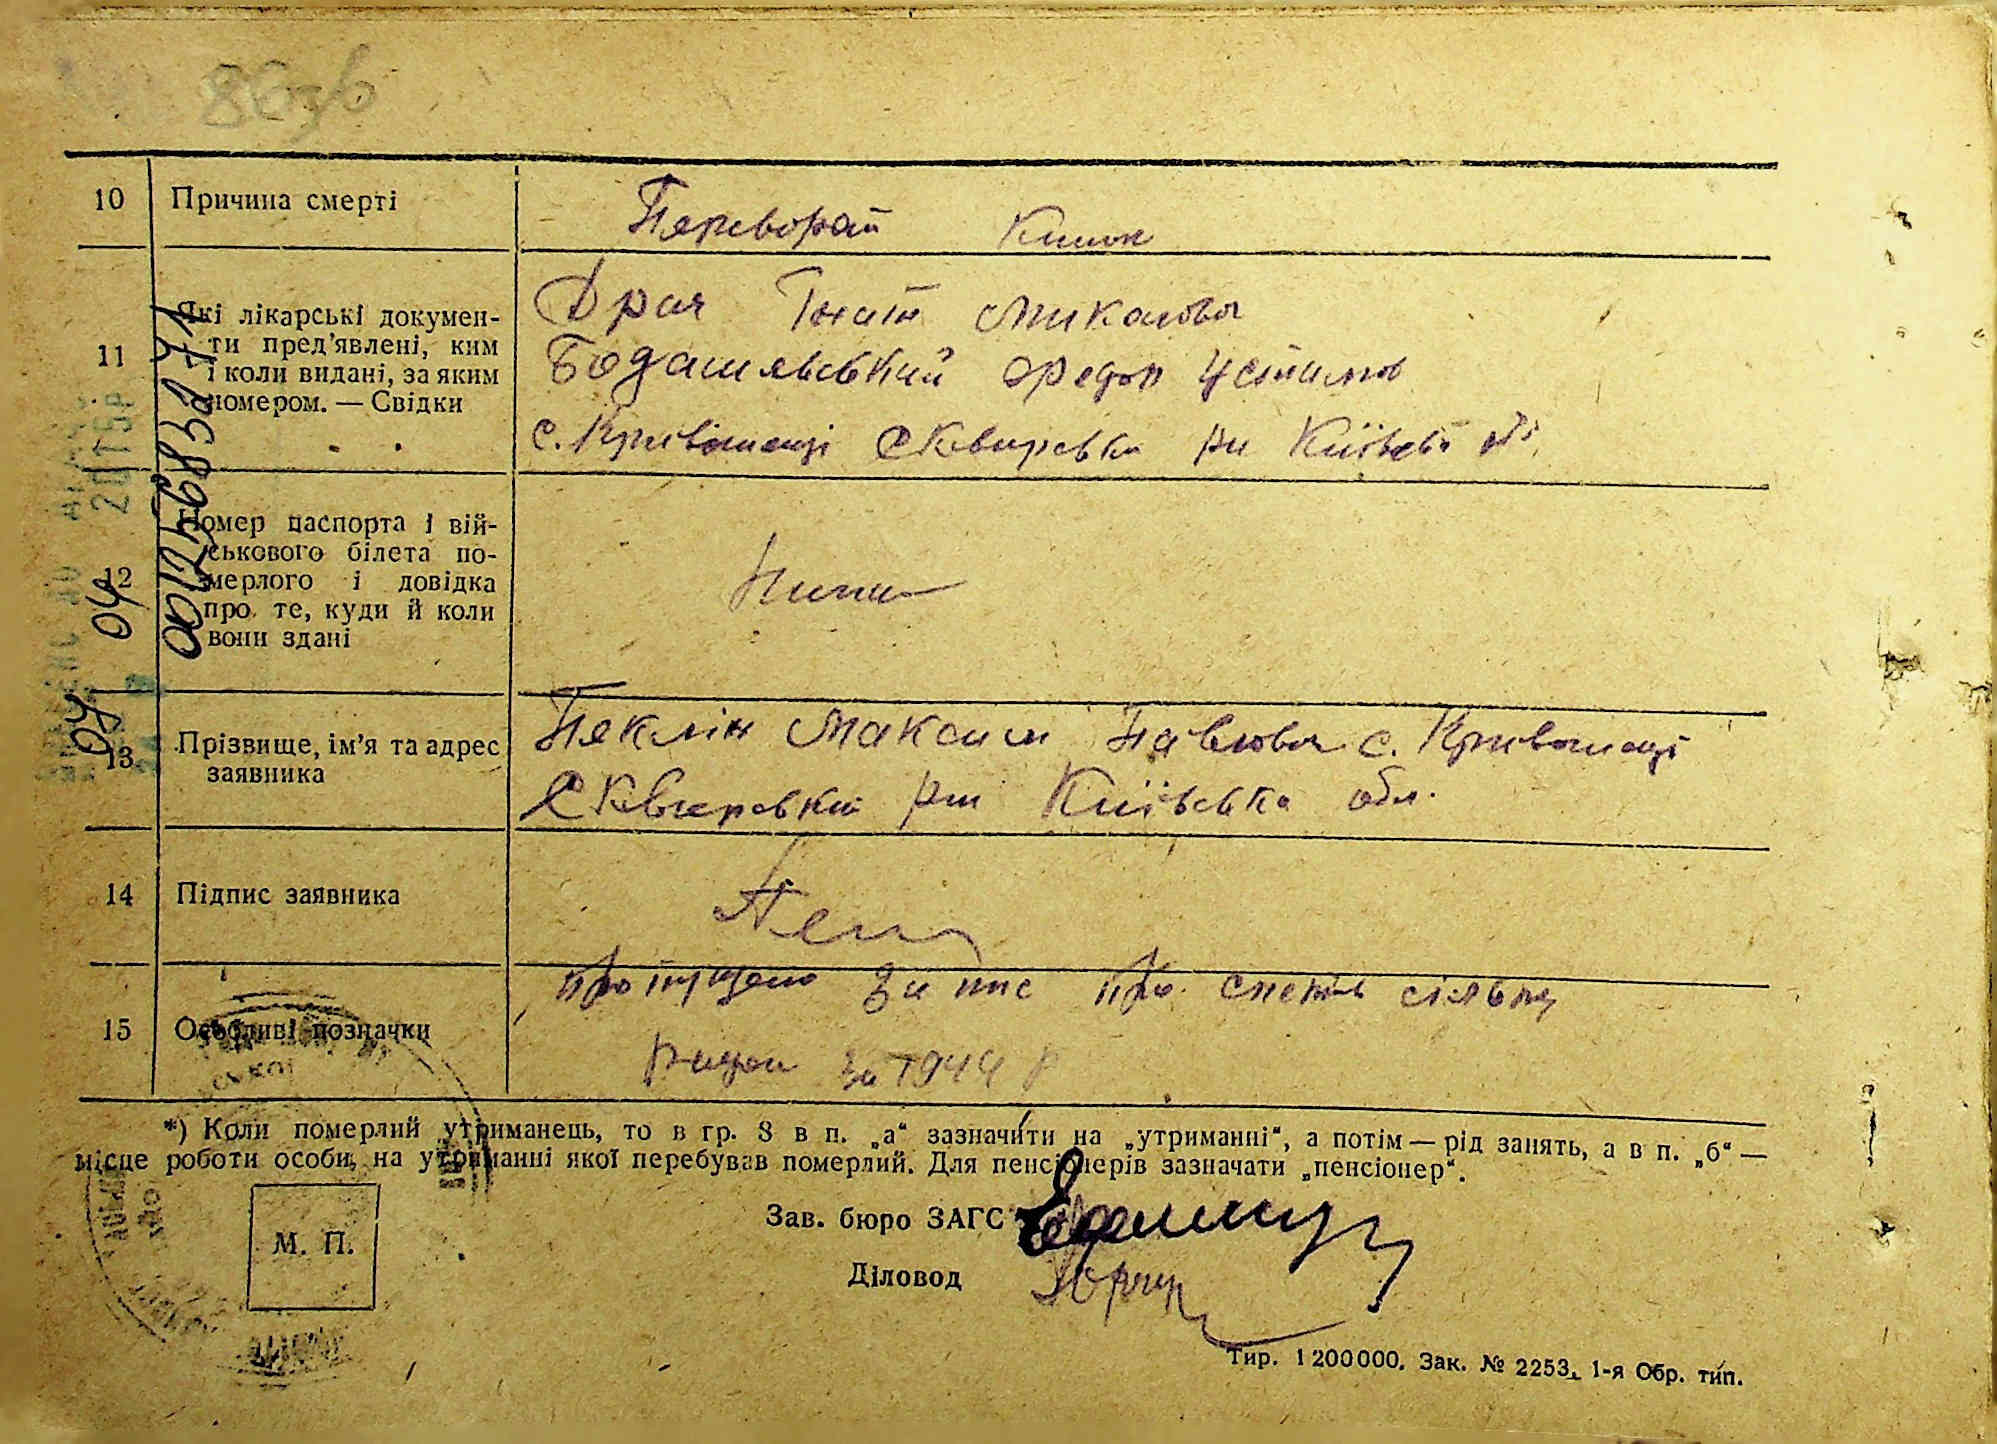 10 Причина смерті
Переворот Кишок
11 Які лікарські докумен-
ти пред'явлені, ким
і коли видані, за яким
номером. — Свідки
Драч Гнат Микалович
Бодашевський Федор Устимов
с. Кривошеці Сквирська рн Київська об
12 Номер паспорта і вій-
ськового білета по-
мерлого і довідка
про те, куди й коли
вони здані
13 Прізвище, ім'я та адрес
заявника
Пяклін Максим Павлович с. Кривошеці
Сквирський рн Київська обл.
14 Підпис заявника
15 Особливі позначки
пропущено запис про смерть сільською
радою за 1944 р
*) Коли померлий утриманець, то в гр. 8 в п. „а“ зазначити на „утриманні“, а потім — рід занять, а в п. „б“ —
місце роботи особи, на утриманні якої перебував померлий. Для пенсіонерів зазначати „пенсіонер“.
Зав. бюро ЗАГС
М. П.
Діловод
Тир. 1200000. Зак. № 2253, 1-я Обр. тип.